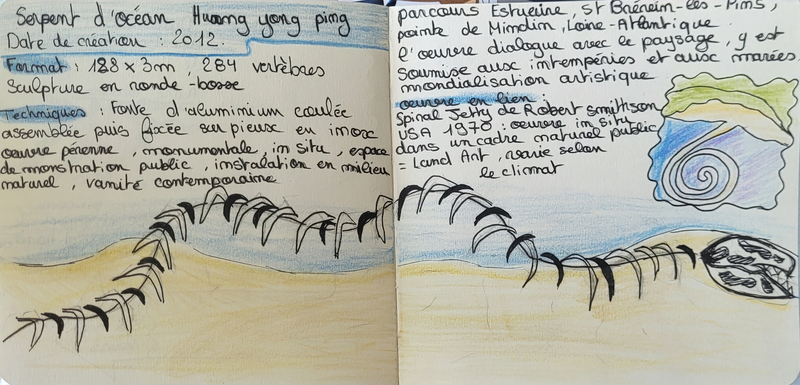 Serpent d'océan Huang yong ping
Date de création : 2012.
Format : 128 x 3m, 284 vertèbres
Sculpture en ronde-bosse
Techniques : Fonte d'aluminium coulée
assemblée puis fixée sur pieux en inox
œuvre pérenne, monumentale, in situ, espace
de monstration public, installation en milieu
naturel, vanité contemporaine
parcours Estuerine, St Brénein-les-Pins,
pointe de Mindin, Loire-Atlantique.
l'œuvre dialogue avec le paysage, y est
soumise aux intempéries et aux marées.
mondialisation artistique
œuvre en lien :
Spinal Jetty de Robert smithson
USA 1970 : œuvre in situ
dans un cadre naturel public
= Land Art, varie selon
le climat